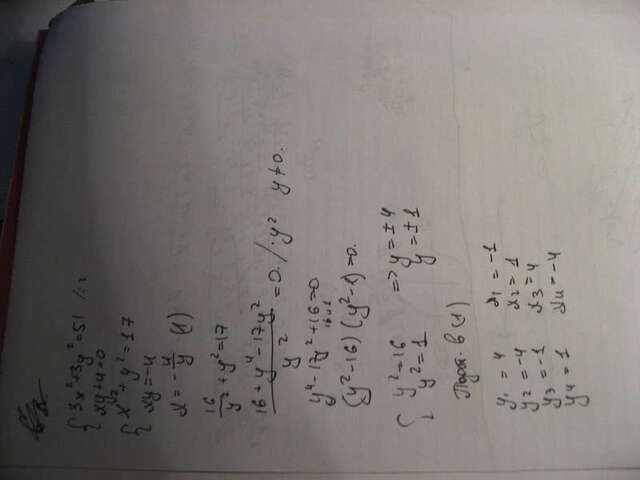 { 3x²+3y²=51 /:3
xy+4=0
{ x²+y²=17
xy=-4
x=-4/y (1)
16/y²+y²=17
(16+y⁴-17y²)/y²=0. /·y² y≠0.
y⁴-17y²+16=0
16 и 1
(y²-16)(y²-1)=0.
{ y²=16 => y=±4
y²=1 y=±1
Подст. в (1)
y₁=4 x₁=-1
y₂=-4 x₂=1
y₃=-1 x₃=4
y₄=1 x₄=-4